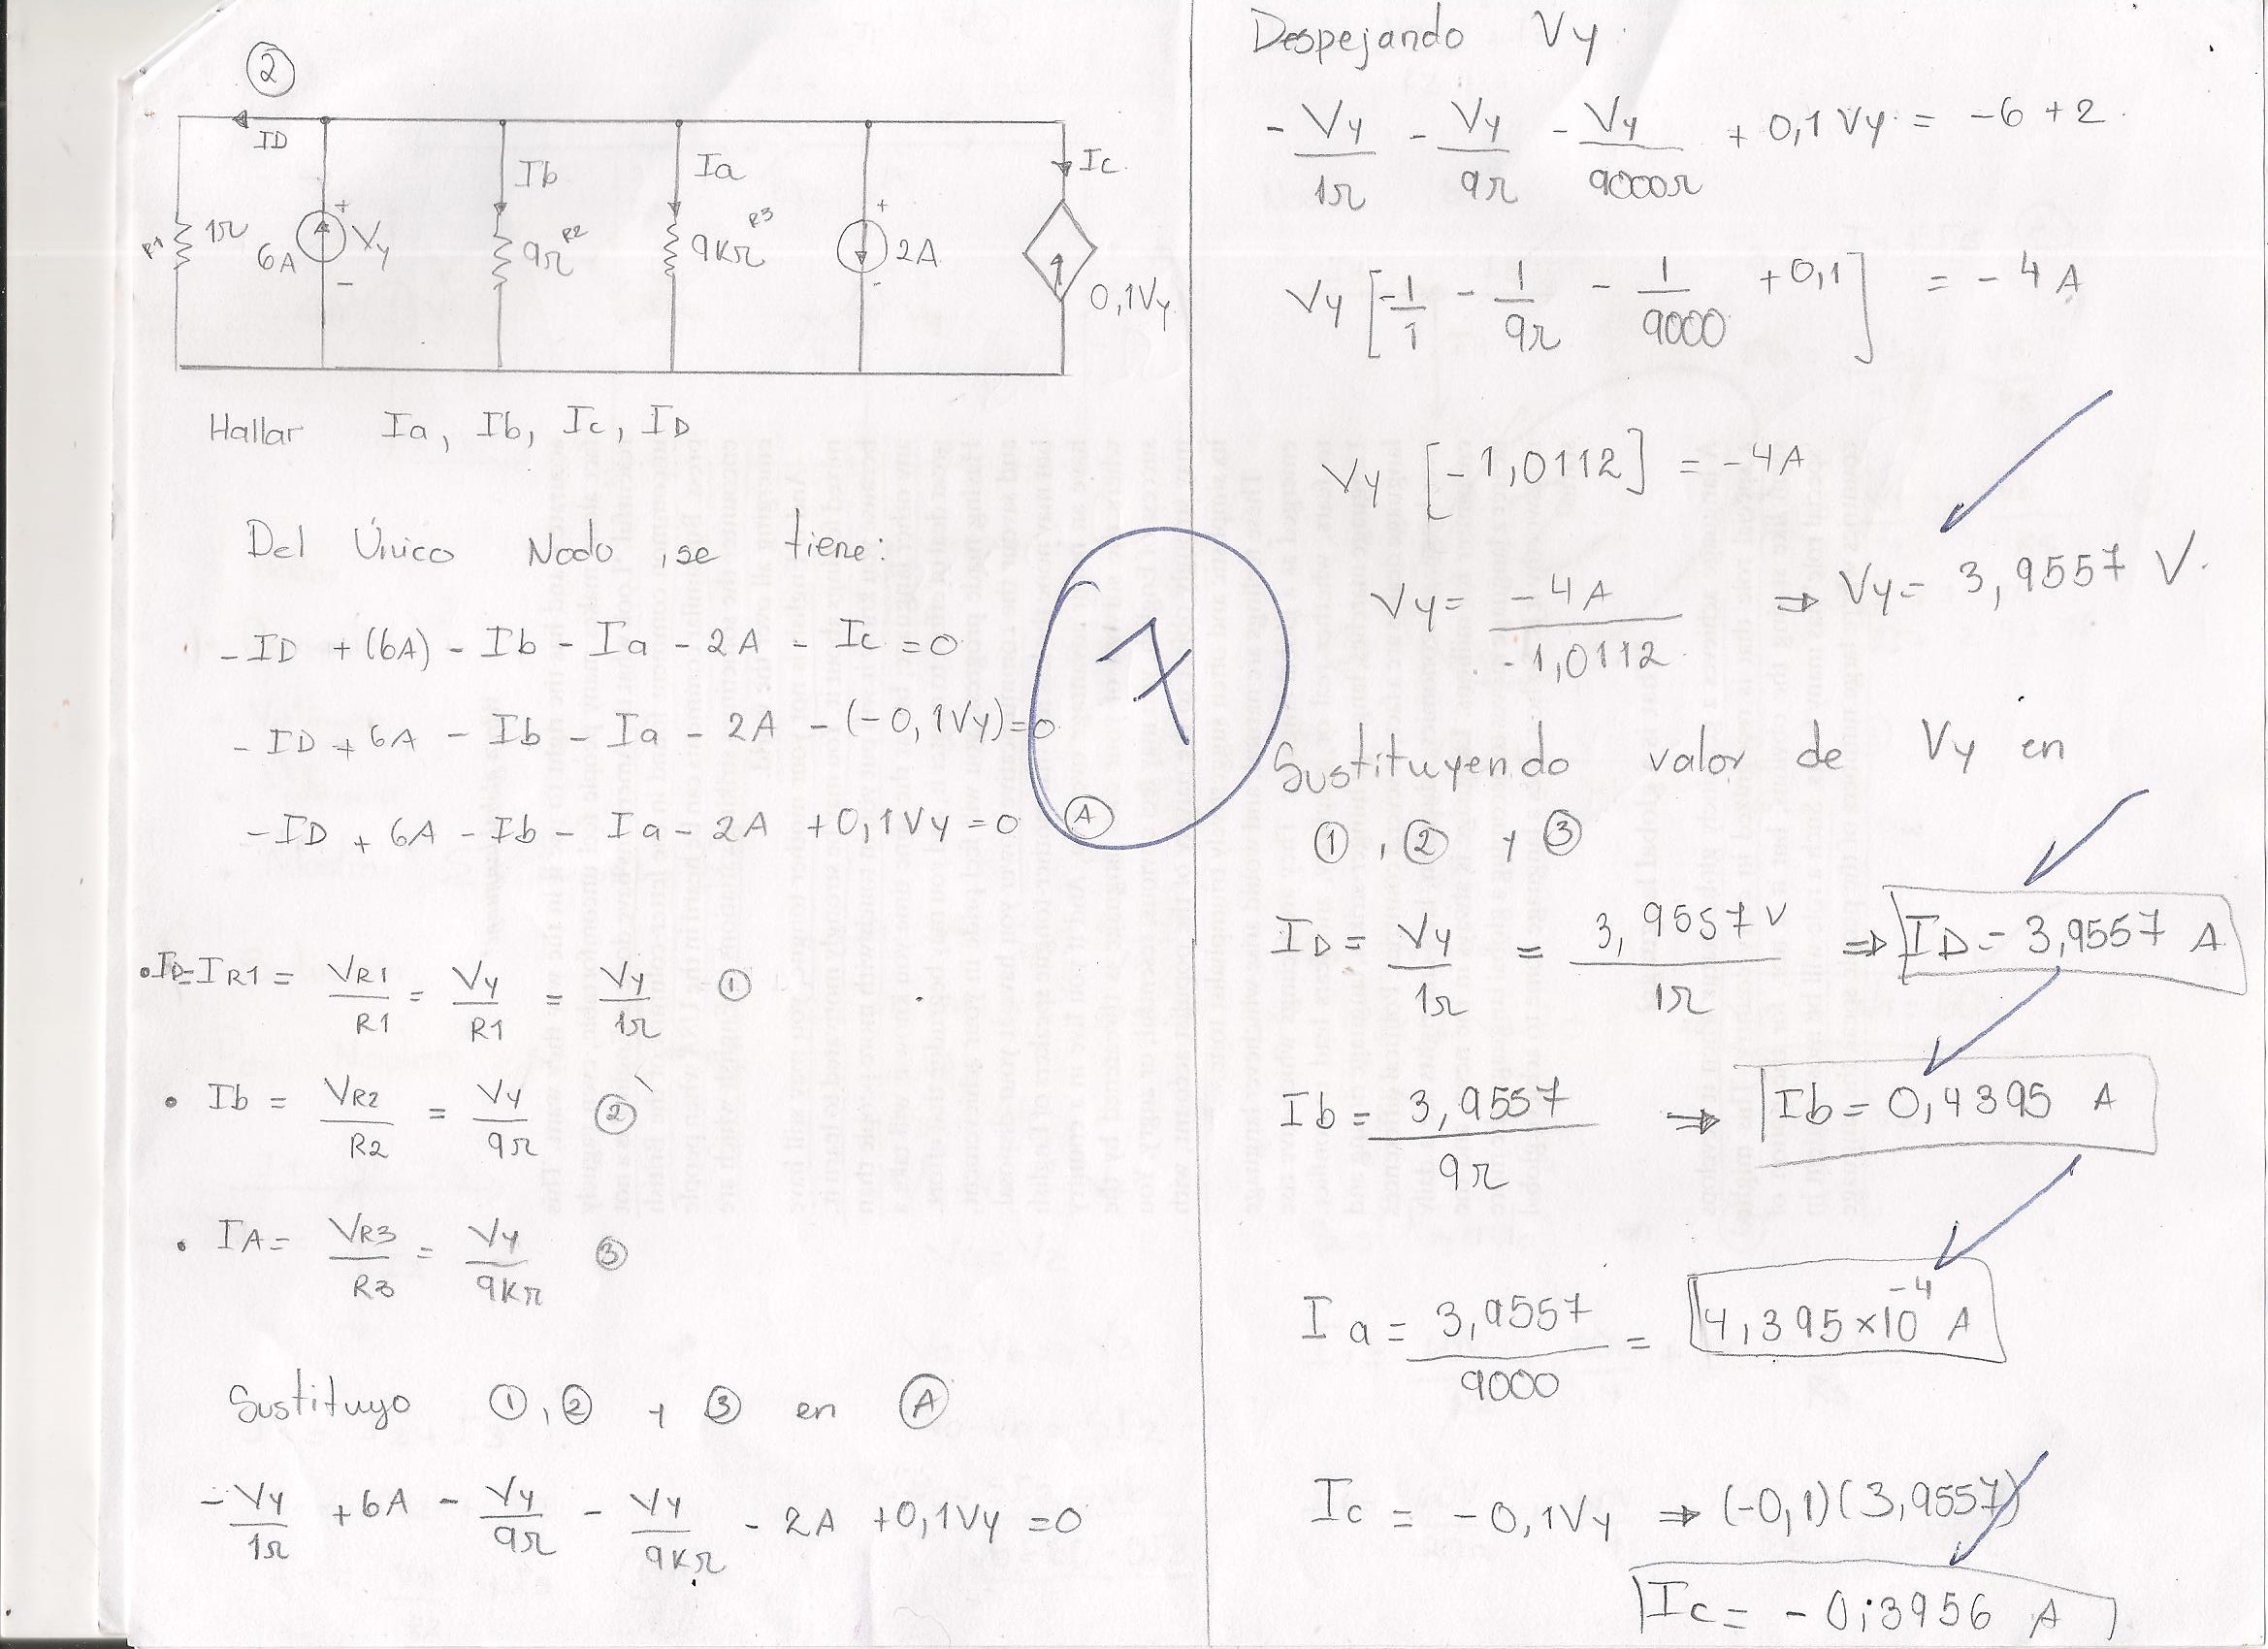 ②
ID
Ib
Ia
Ic
R1 1Ω
6A
+
Vy
-
9Ω R2
9KΩ R3
+
2A
-
0,1Vy
Hallar Ia, Ib, Ic, ID
Del Único Nodo, se tiene:
-ID + (6A) - Ib - Ia - 2A - Ic = 0
-ID + 6A - Ib - Ia - 2A - (-0,1Vy) = 0
-ID + 6A - Ib - Ia - 2A + 0,1Vy = 0 Ⓐ
7
• ID = IR1 = VR1/R1 = Vy/R1 = Vy/1Ω ①
• Ib = VR2/R2 = Vy/9Ω ②
• IA = VR3/R3 = Vy/9KΩ ③
Sustituyo ①, ② y ③ en Ⓐ
-Vy/1Ω + 6A - Vy/9Ω - Vy/9KΩ - 2A + 0,1Vy = 0
Despejando Vy.
-Vy/1Ω - Vy/9Ω - Vy/9000Ω + 0,1Vy = -6 + 2
Vy [-1/1 - 1/9Ω - 1/9000 + 0,1] = -4A
Vy [-1,0112] = -4A
Vy = -4A/-1,0112 ⇒ Vy = 3,9557 V.
Sustituyendo valor de Vy en
①, ② y ③
ID = Vy/1Ω = 3,9557V/1Ω ⇒ ID = 3,9557 A
Ib = 3,9557/9Ω ⇒ Ib = 0,4395 A
Ia = 3,9557/9000 = 4,395×10⁻⁴ A
Ic = -0,1Vy ⇒ (-0,1)(3,9557)
Ic = -0,3956 A